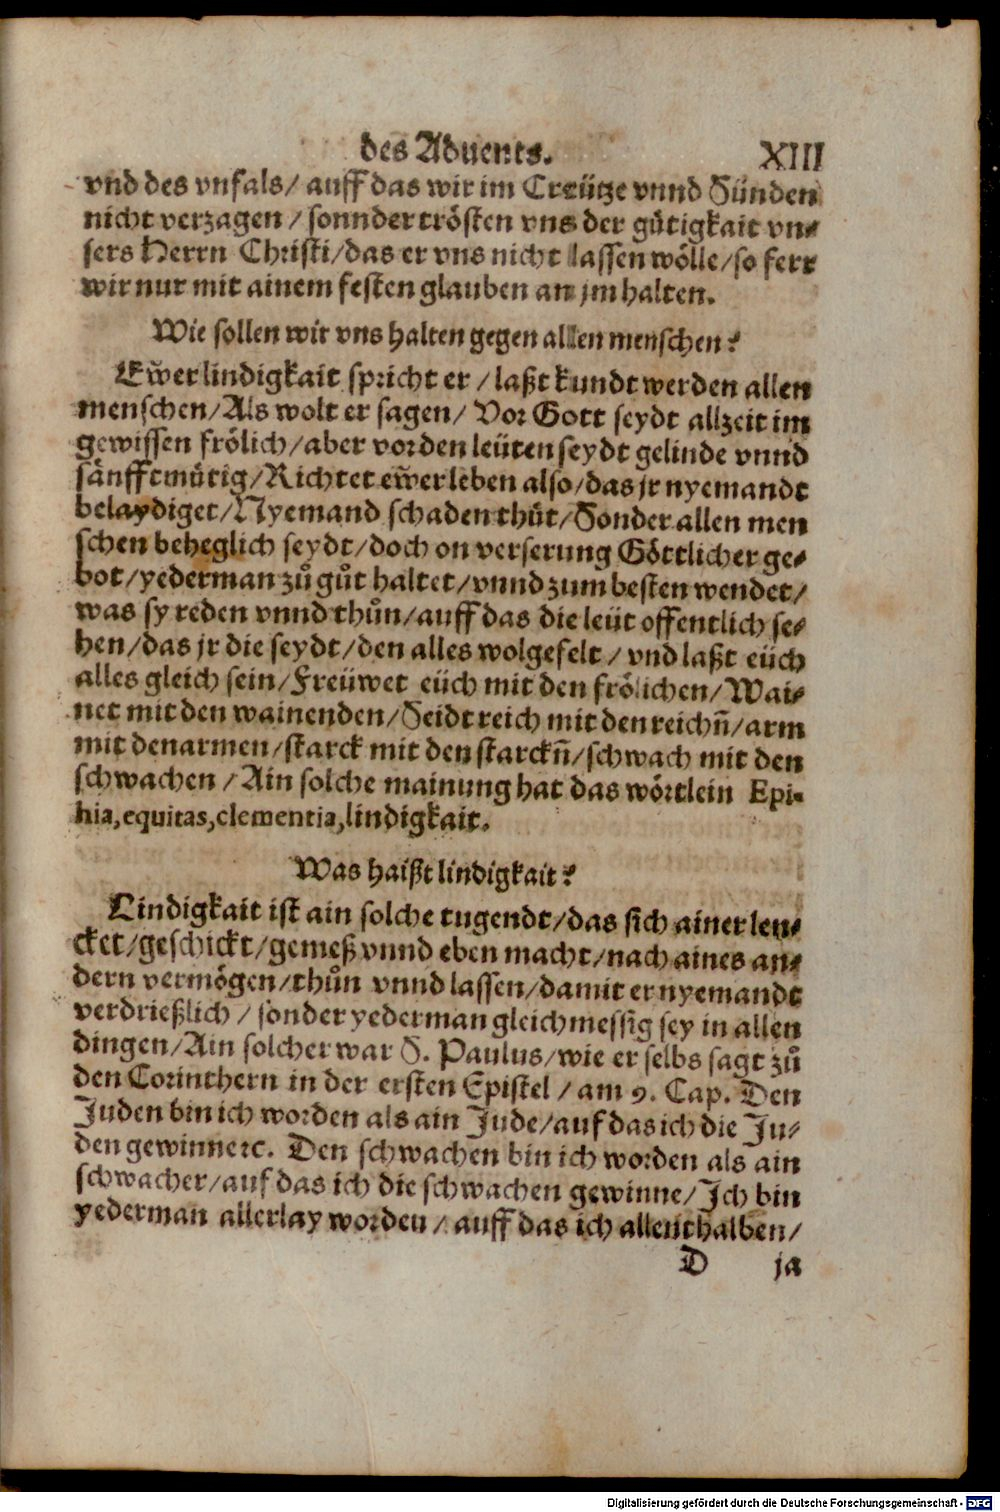 des Aduents. XIII
vnd des vnfals/ auff das wir im Creütze vnnd Sünden
nicht verzagen / sonnder trösten vns der gütigkait vn-
sers Herrn Christi/das er vns nicht lassen wölle/so ferr
wir nur mit ainem festen glauben an jm halten.
Wie sollen wir vns halten gegen allen menschen?
Ewͤer lindigkait spricht er / laßt kundt werden allen
menschen/Als wolt er sagen/ Vor Gott seydt allzeit im
gewissen frölich/aber vor den leüten seydt gelinde vnnd
sänfftmütig/Richtet ewͤer leben also/das jr nyemandt
belaydiget/Nyemand schaden thüt/Sonder allen men
schen beheglich seydt/doch on verserung Göttlicher ge-
bot/yederman zů gůt haltet/vnnd zum besten wendet/
was sy reden vnnd thůn/auff das die leüt offentlich se-
hen/das jr die seydt/den alles wolgefelt / vnd laßt eüch
alles gleich sein/Freüwet eüch mit den frölichen/Wai-
net mit den wainenden/Seidt reich mit den reichñ/arm
mit den armen/starck mit den starckñ/schwach mit den
schwachen / Ain solche mainung hat das wörtlein Epi-
hia,equitas,clementia,lindigkait.
Was haißt lindigkait?
Lindigkait ist ain solche tugendt/das sich ainer len-
cket/geschickt/gemeß vnnd eben macht/nach aines an-
dern vermögen/thůn vnnd lassen/damit er nyemandt
verdrießlich / sonder yederman gleichmessig sey in allen
dingen/Ain solcher war S. Paulus/wie er selbs sagt zů
den Corinthern in der ersten Epistel / am 9. Cap. Den
Juden bin ich worden als ain Jude/auf das ich die Ju-
den gewinne ꝛc. Den schwachen bin ich worden als ain
schwacher/auf das ich die schwachen gewinne/Ich bin
yederman allerlay worden / auff das ich allenthalben/
D ja
Digitalisierung gefördert durch die Deutsche Forschungsgemeinschaft - DFG